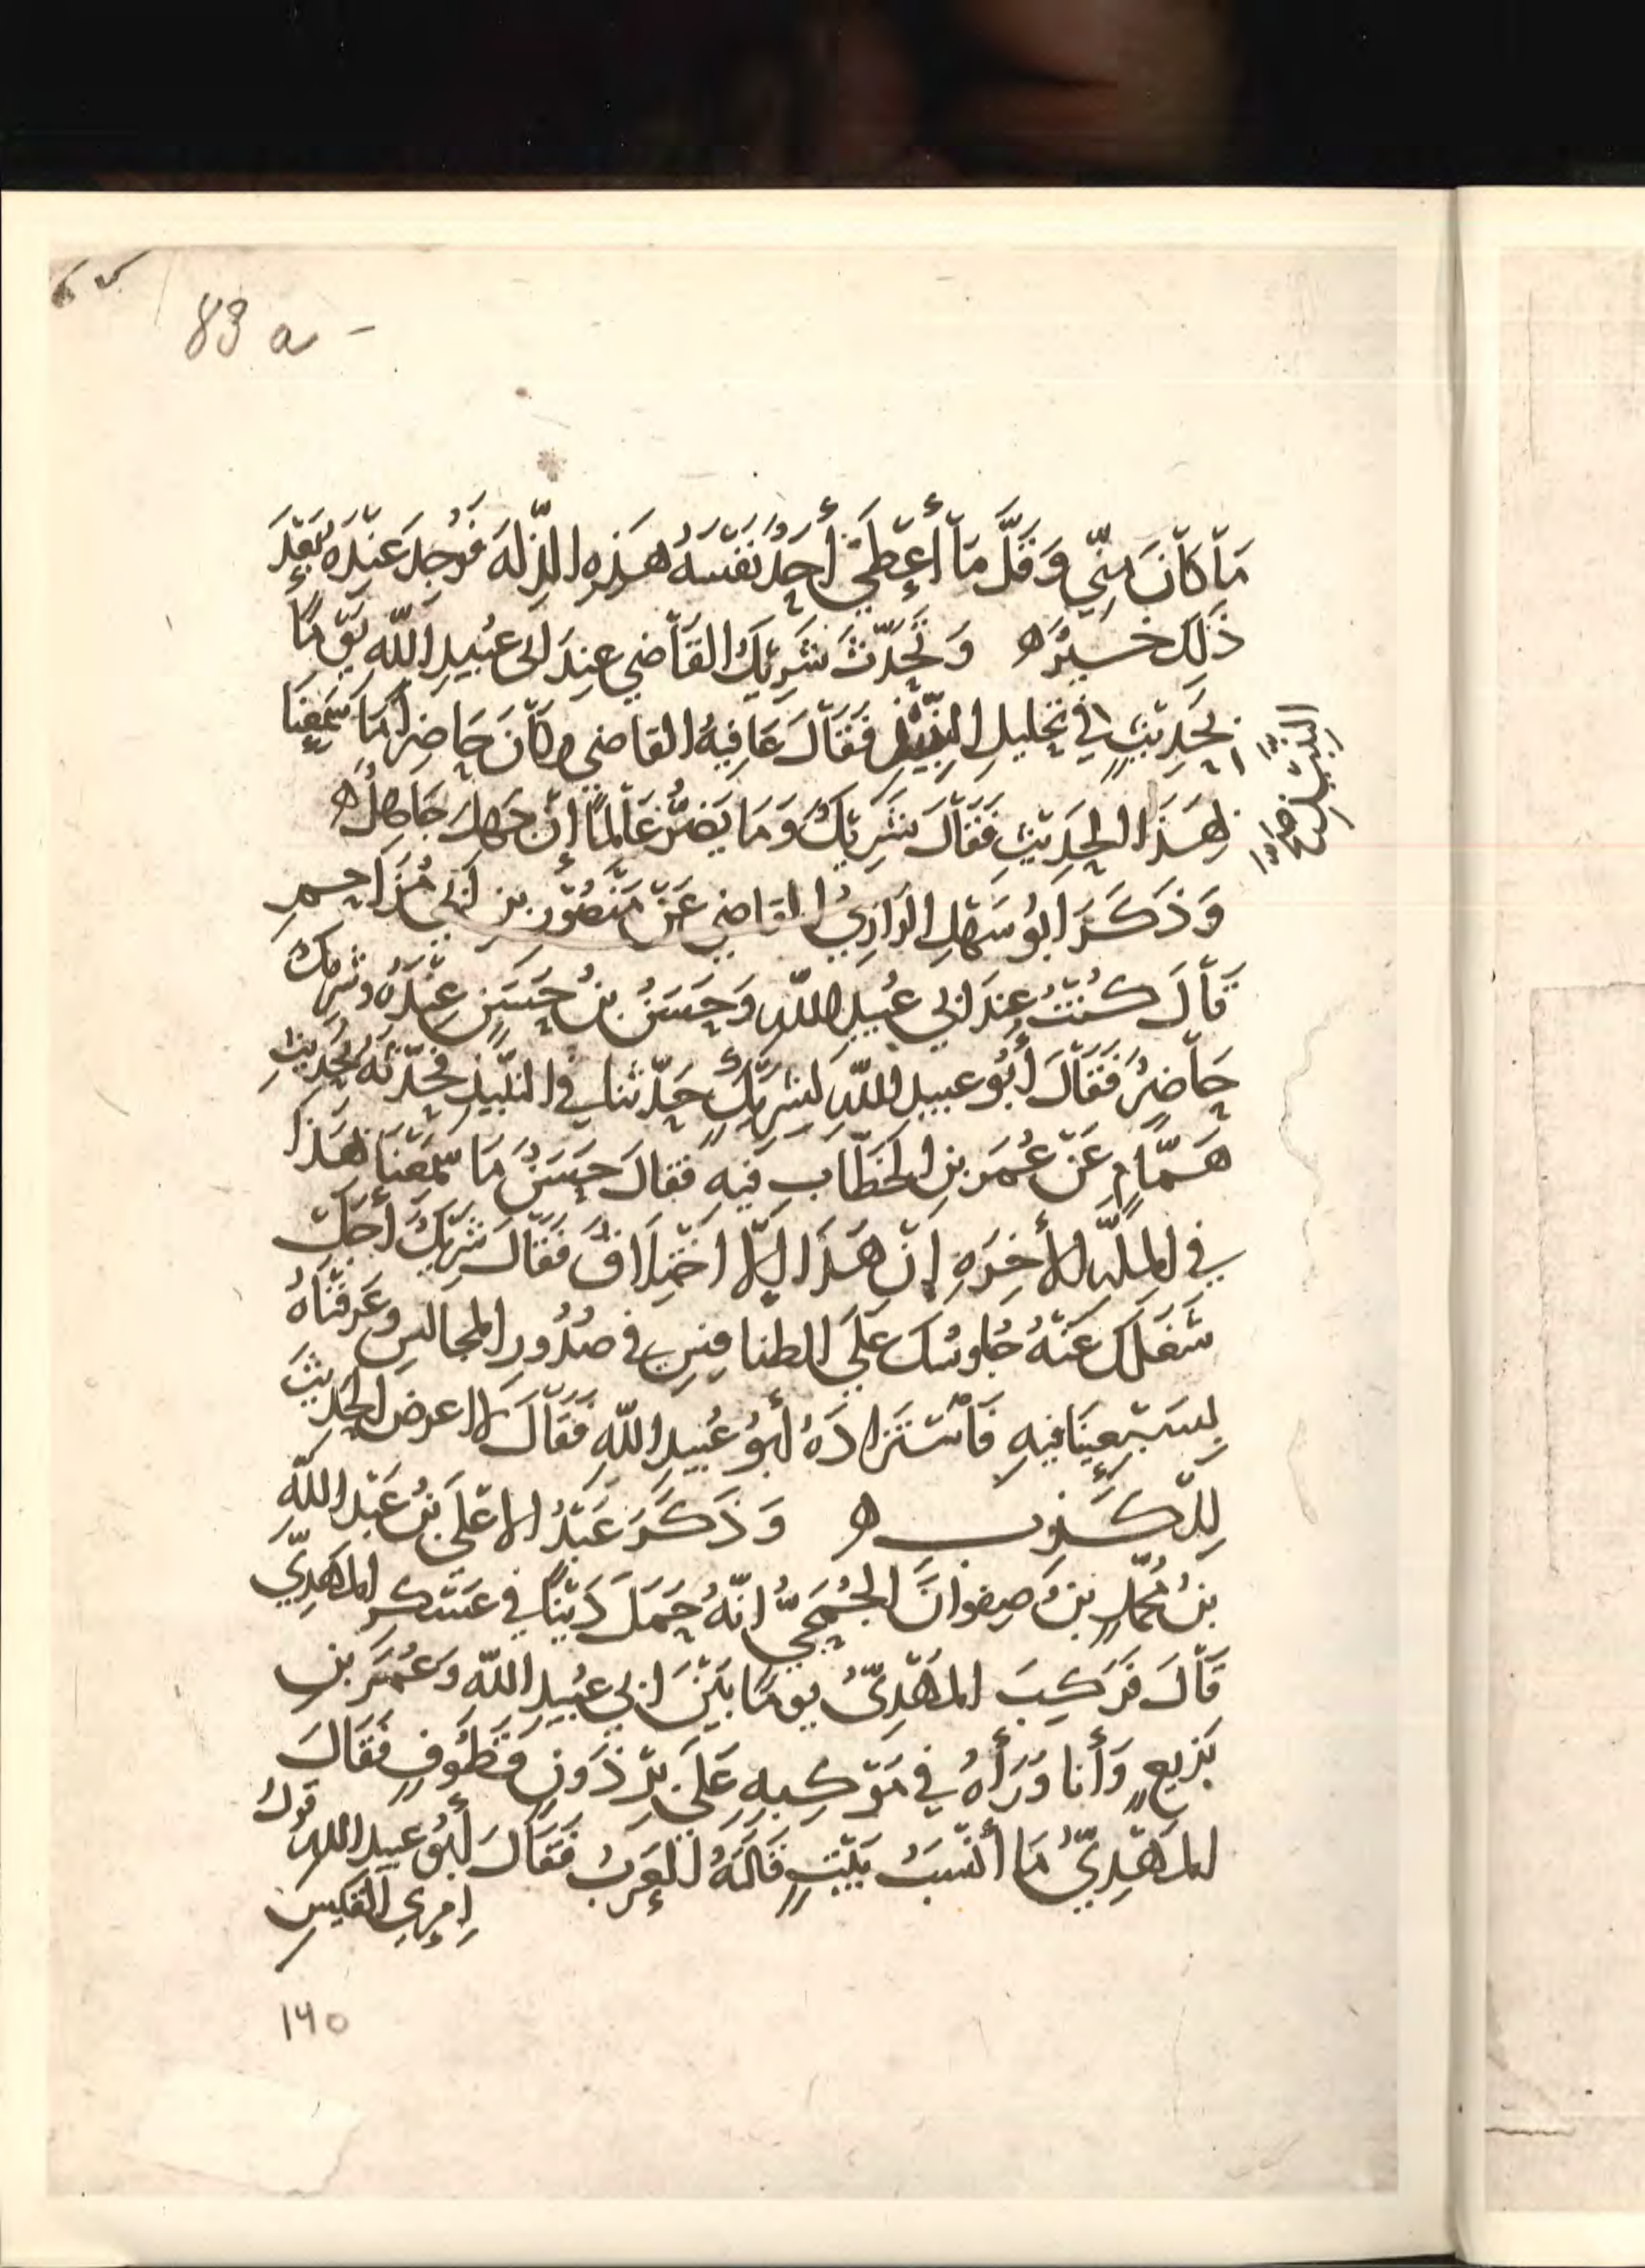 83 a -
مَا كَانَ مِنِّي وَقَلَّ مَا أَعْطَى أَحَدٌ نَفْسَهُ هَذِهِ المنزلَة فَوُجِدَ عِنْدَهُ بَعْدَ
ذَلِكَ خَيْرٌ ه وَتَحَدَّثَ شَرِيكٌ القَاضِي عِنْدَ ابى عُبَيدِ اللّهِ يَوْمًا
بحَدِيْثٍ فِي تحليلِ النَّبِيْذِ فَقَالَ عَافِيةُ القاضِي وكَانَ حَاضِرًا مَا سَمِعْنَا
النبيذ
بِهَذَا الحَدِيْثِ فَقَالَ شَرِيكٌ وَمَا يَضُرُّ عَالِمًا إنْ جَهِلَ جَاهِلٌ ه
وَذَكَرَ ابُو سَهْلٍ الرازِيُّ القاضِي عَنْ مَنْصُوْرِ بنِ ابى مُزَاحِمٍ
قَالَ كُنْتُ عِندَ ابى عُبَيدِ اللّهِ وَحَسَنُ بنُ حَسَنٍ عِنْدَهُ وشَرِيكٌ
حَاضِرٌ فَقَالَ أَبُو عبيدِ اللّهِ لشَرِيْكٍ حَدِّثنا في النَّبِيْذِ فحَدَّثَهُ بحَدِيثِ
هَمَّامٍ عَنْ عُمَر بنِ الخطّابِ فيهِ فقالَ حسَنٌ مَا سَمِعْنَا بهَذا
فِي المِلَّةِ الأَخِرَةِ إِنْ هَذَا إِلَّا اخْتِلَاقٌ فَقَالَ شَرِيْكٌ أَجَلْ
شَغَلَكَ عَنْهُ جُلوسُكَ عَلَى الطنافِسِ في صُدُورِ المجَالسِ وعَرَفْنَاهُ
بسَعْيِنَا فيهِ فَاسْتَزَادَهُ أَبُو عُبيدِ اللّهِ فَقَالَ لا اعرض الحَدِيثَ
لِلْكَذِبِ ه وَذَكَرَ عَبْدُ الاعْلَى بنُ عَبْدِ اللّهِ
بنُ محمّدِ بنُ صفوانَ الجُمَحِيُّ انّهُ حَمَلَ دَيْنًا في عَسْكَرِ المهْدِيِّ
قَالَ فَرَكِبَ المَهْدِيُّ يومًا بَيْنَ ابى عُبَيدِ اللّهِ وَعُمَرَ بنِ
بَزِيعٍ وَأَنا وَرَأهُ فِي مَوْكِبِهِ عَلَى بِرْذَوْنٍ قَطُوفٍ فَقَالَ
المَهْدِيُّ مَا أَنْسَبُ بَيْتٍ قَالَتْهُ العَرَبُ فَقَالَ أَبُو عبيدِ اللّهِ قولُ
امرِئِ القَيسِ
١٦٥